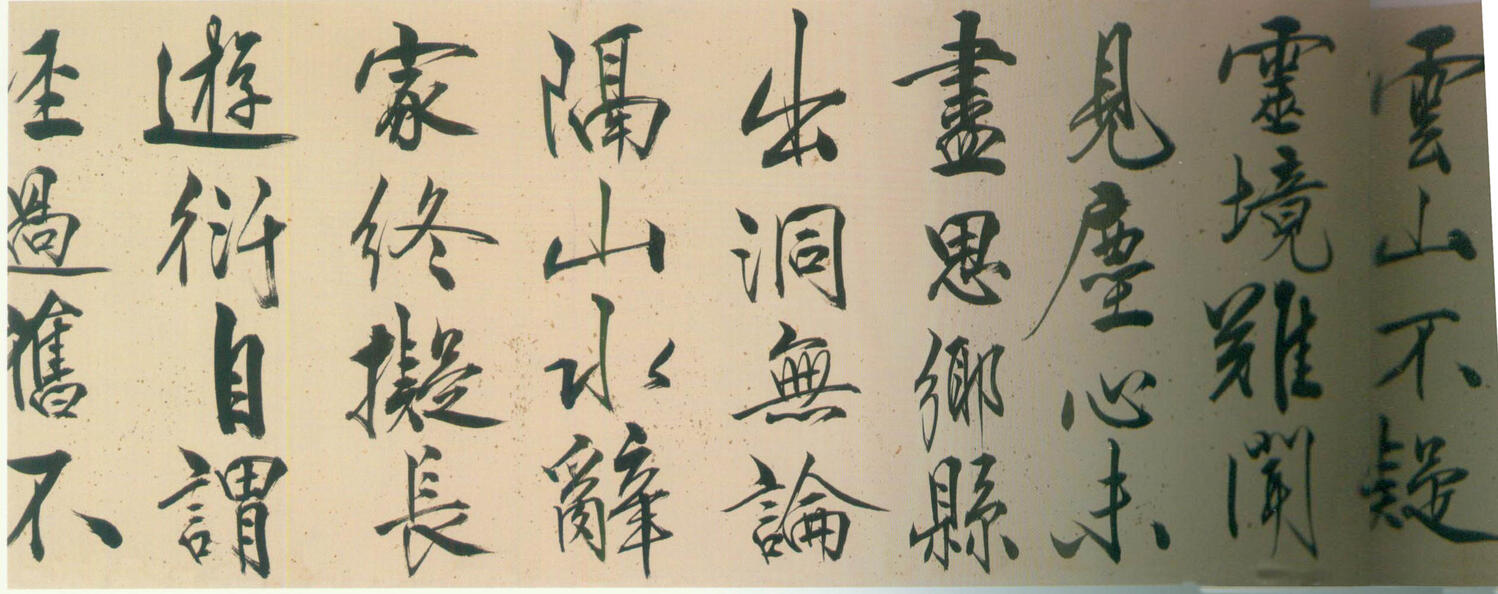 雲山不疑
靈境難聞
見塵心未
盡思鄉縣
出洞無論
隔山水辭
家終擬長
遊衍自謂
經過舊不